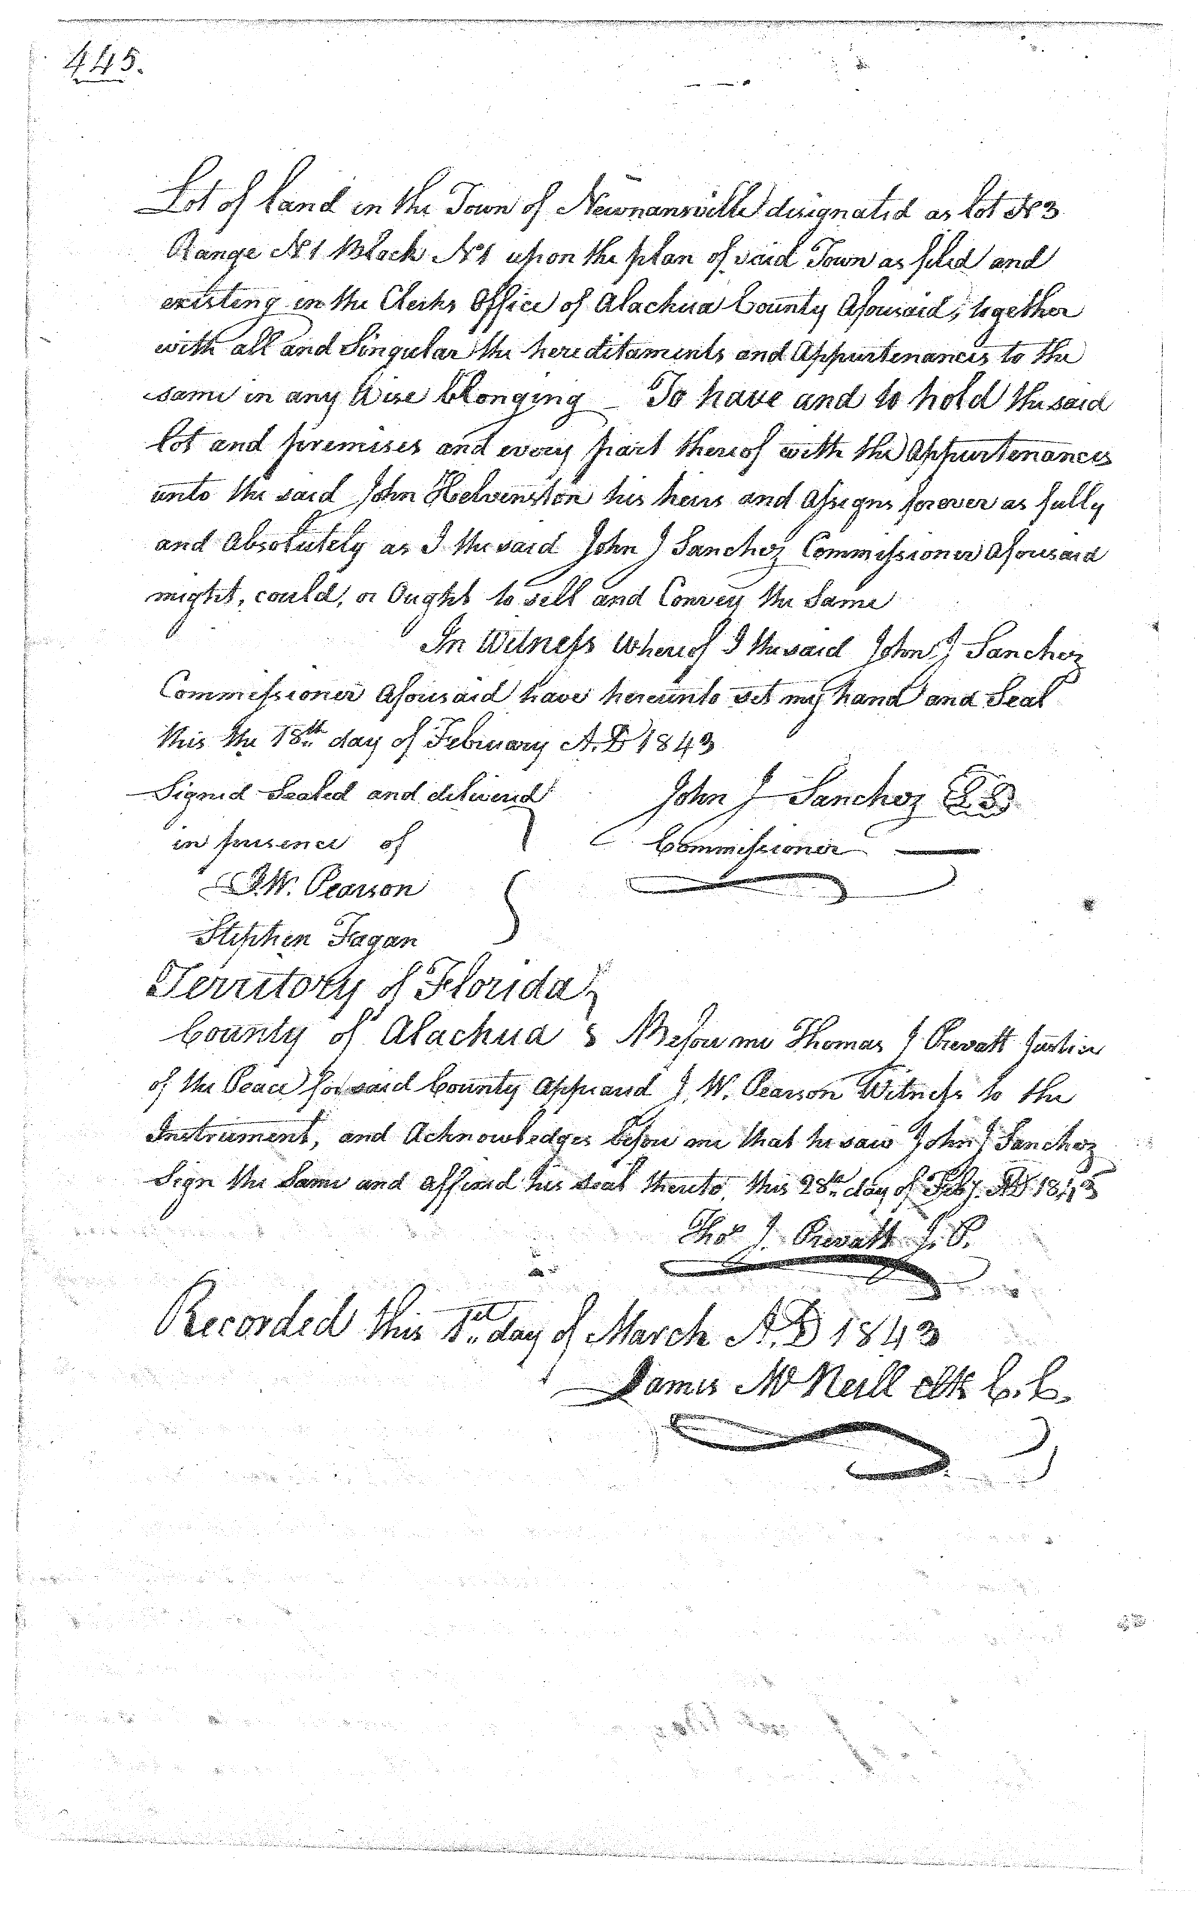 445.
Lot of land in the Town of Newnansville designated as lot No 3
Range No 1 Block No 1 upon the plan of said Town as filed and
existing in the Clerks Office of Alachua County Aforesaid, together
with all and Singular the hereditaments and Appurtenances to the
same in any Wise belonging To have and to hold the said
lot and premises and every part thereof with the Appurtenances
unto the said John Helvenston his heirs and Assigns forever as fully
and Absolutely as I the said John J Sanchez Commissioner Aforesaid
might, could, or Ought to sell and Convey the Same
In Witness Whereof I the said John J Sanchez
Commissioner Aforesaid have hereunto set my hand and Seal
this the 18th day of February A.D 1843
Signed Sealed and delivered John J Sanchez L.S.
in presence of Commissioner
J.W. Pearson
Stephen Fagan
Territory of Florida
County of Alachua Before me Thomas J Prevatt Justice
of the Peace for said County Appeared J. W. Pearson Witness to the
Instrument, and Acknowledges before me that he saw John J Sanchez
Sign the Same and affixed his seal thereto, this 28th day of Feby. AD 1843
Thos J. Prevatt J. P.
Recorded this 1st day of March A.D 1843
James McNeill clk C. C.